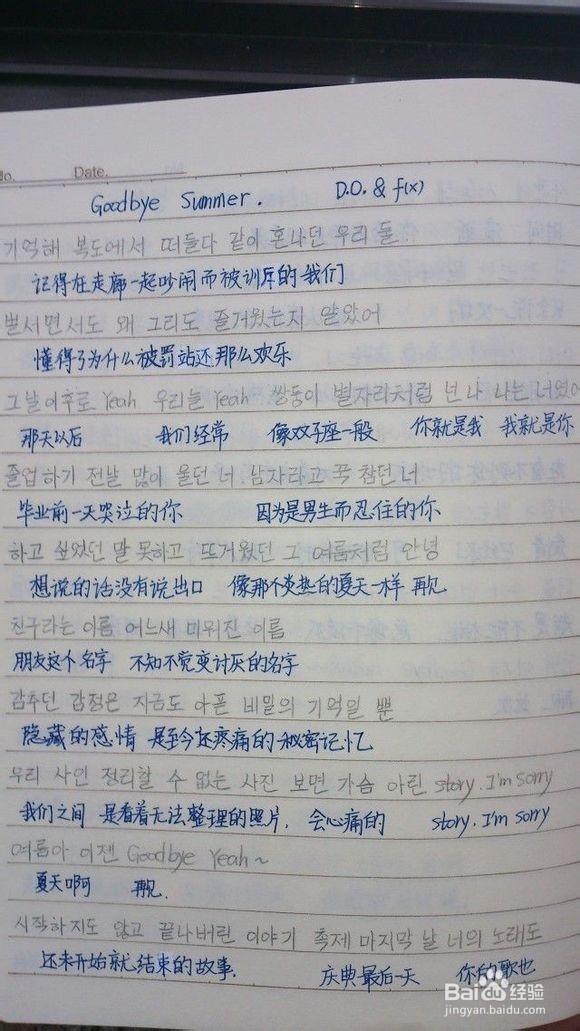 No. Date.
Goodbye Summer. D.O. & f(x)
기억해 복도에서 떠들다 같이 혼나던 우리 둘
记得在走廊一起吵闹而被训斥的我们
벌서면서도 왜 그리도 즐거웠는지 알았어
懂得了为什么被罚站还那么欢乐
그날 이후로 Yeah 우리늘 Yeah 쌍둥이 별자리처럼 넌 나 나는 너였어
那天以后 我们经常 像双子座一般 你就是我 我就是你
졸업하기 전날 많이 울던 너 남자라고 꾹 참던 너
毕业前一天哭泣的你 因为是男生而忍住的你
하고 싶었던 말 못하고 뜨거웠던 그 여름처럼 안녕
想说的话没有说出口 像那个炎热的夏天一样 再见
친구라는 이름 어느새 미워진 이름
朋友这个名字 不知不觉变讨厌的名字
감추던 감정은 지금도 아픈 비밀의 기억일 뿐
隐藏的感情 是至今还疼痛的秘密记忆
우리 사인 정리할 수 없는 사진 보면 가슴 아린 story. I'm sorry
我们之间 是看着无法整理的照片, 会心痛的 story. I'm sorry
여름아 이젠 Goodbye Yeah~
夏天啊 再见.
시작하지도 않고 끝나버린 이야기 축제 마지막 날 너의 노래도
还未开始就结束的故事. 庆典最后一天 你的歌也
Baidu 经验
jingyan.baidu.com